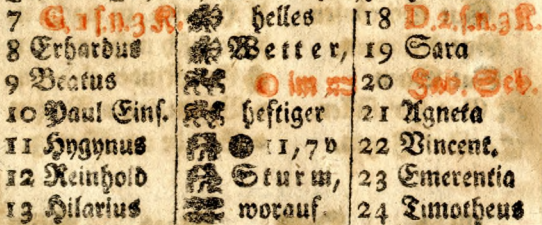 7 G. 1 f. n. 3 K. helles 18 D. 2. f. n. 3 K.
8 Erhardus Wetter, 19 Sara
9 Beatus ☉ im ♒ 20 Fab. Seb.
10 Paul Einſ. heftiger 21 Agneta
11 Hygynus ● 11, 7 v 22 Vincent.
12 Reinhold Sturm, 23 Emerentia
13 Hilarius worauf 24 Timotheus